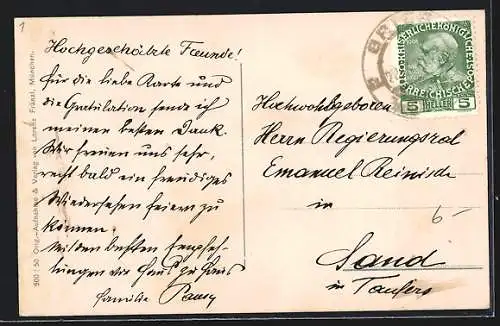 1
Hochgeschätzte Freunde!
für die liebe Karte und
die Gratulation sende ich
meinen besten Dank.
Wir freuen uns sehr,
recht bald ein freudiges
Wiedersehen feiern zu
können.
Mit den besten Empfeh-
lungen von Haus zu Haus
Familie
Hochwohlgeboren
Herrn Regierungsrat
Emanuel Reinisch
in
Sand
in Taufers
6-
900 | 50 Orig.-Aufnahme & Verlag von Lorenz Fränzl, München.
KAISERLICHEKÖNIGLICHE
ÖSTERREICHISCHE
5 HELLER 5